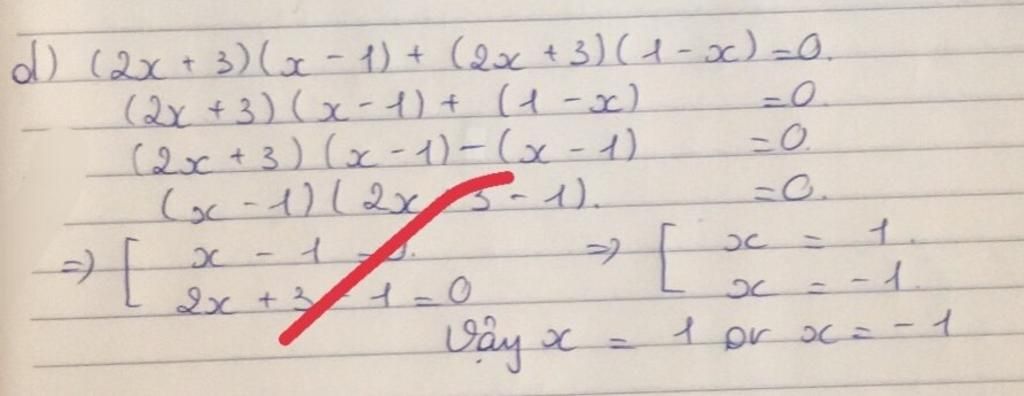 d) (2x + 3)(x - 1) + (2x + 3)(1 - x) = 0.
(2x + 3)(x - 1) + (1 - x) = 0.
(2x + 3)(x - 1) - (x - 1) = 0.
(x - 1)(2x 3 - 1). = 0.
=> [ x - 1 => [ x = 1.
2x + 3 - 1 = 0 x = -1.
Vậy x = 1 or x = -1